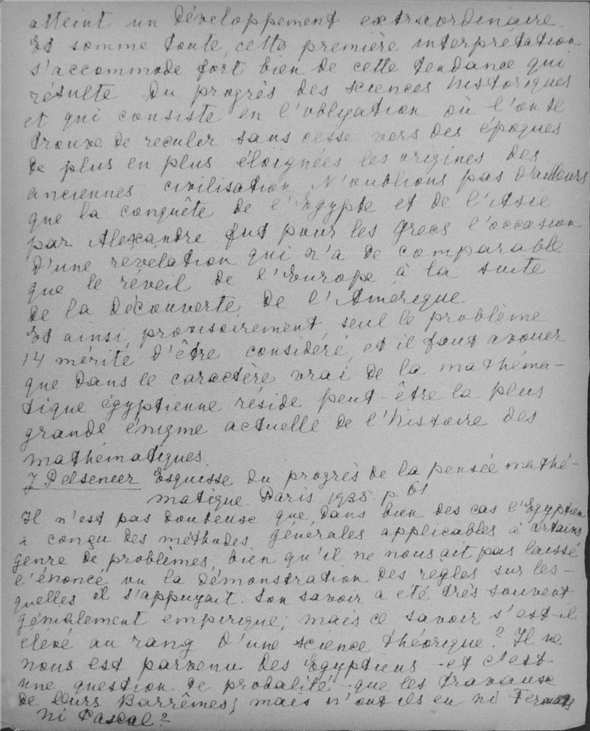 atteint un développement extraordinaire.
Et somme toute, cette première interprétation
s'accommode fort bien de cette tendance qui
résulte du progrès des sciences historiques
et qui consiste en l'obligation où l'on se
trouve de reculer sans cesse vers des époques
de plus en plus éloignées les origines des
anciennes civilisation. N'oublions pas d'ailleurs
que la conquête de l'Egypte et de l'Asie
par Alexandre fut pour les Grecs l'occasion
d'une révélation qui n'a de comparable
que le réveil de l'Europe à la suite
de la découverte de l'Amérique.
Et ainsi, provisoirement, seul le problème
14 mérité d'être considéré, et il faut avouer
que dans le caractère vrai de la mathéma-
tique égyptienne réside peut-être la plus
grande énigme actuelle de l'histoire des
mathématiques.
J Pelseneer Esquisse du progrès de la pensée mathé-
matique Paris 1935 p 61
Il n'est pas douteuse que dans bien des cas l'Egyptien
a conçu des méthodes générales applicables à certains
genre de problèmes, bien qu'il ne nous ait pas laissé
l'énoncé ou la démonstration des règles sur les-
quelles il s'appuyait. Son savoir a été très souvent
génialement empirique; mais ce savoir s'est-il
élevé au rang d'une science théorique? Il ne
nous est parvenu des Egyptiens -et c'est
une question de probalité- que les travaux
de leurs Barrêmes; mais n'ont ils eu ni Fermat
ni Pascal?